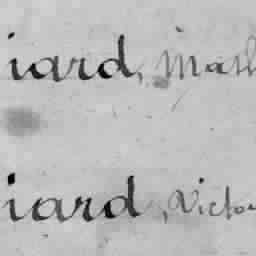 iard, Math
iard, Victor